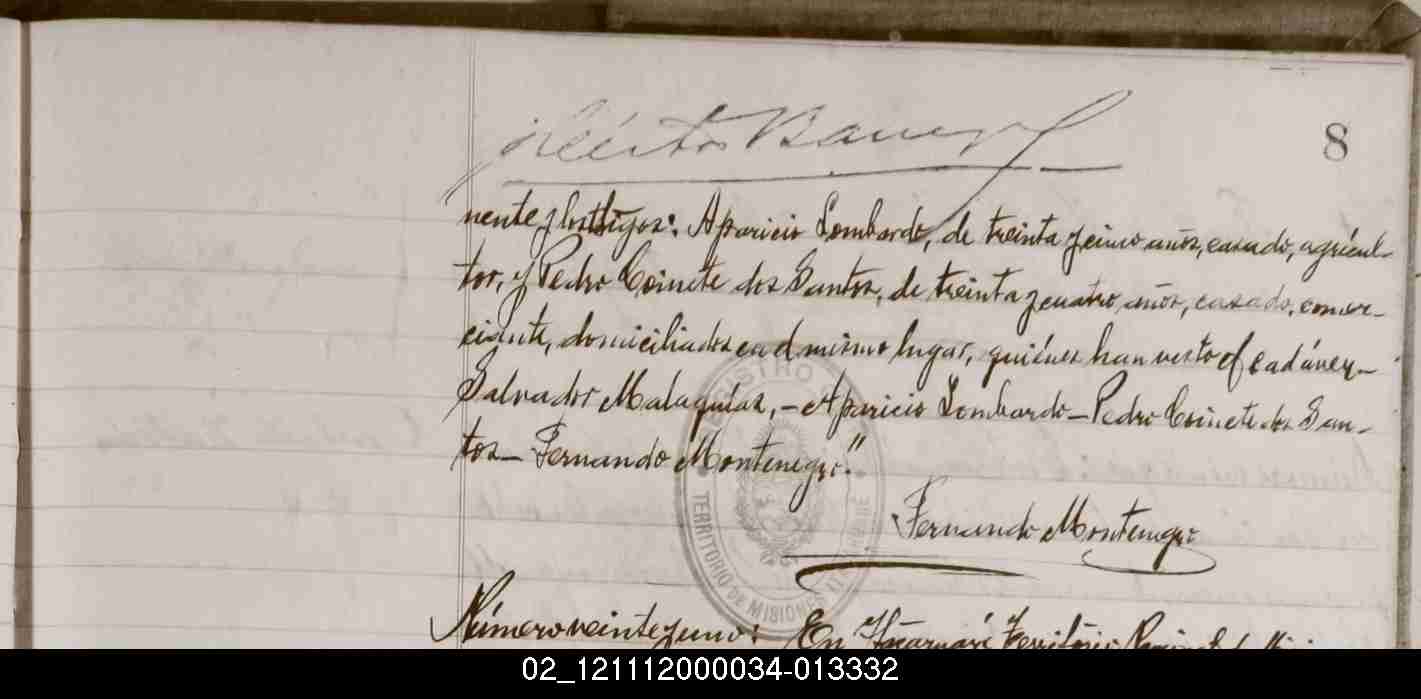 8
Héctor
nente y los testigos: Aparicio Lombardo, de treinta y cinco años, casado, agricul-
tor, y Pedro Coinete dos Santos, de treinta y cuatro años, casado, comer-
ciante, domiciliados en el mismo lugar, quiénes han visto el cadáver.-
Salvador Malaquías, - Aparicio Lombardo - Pedro Coinete dos San-
tos - Fernando Montenegro."
Fernando Montenegro
REGISTRO
TERRITORIO DE MISIONES
Número veinte y uno: En Territorio
02_121112000034-013332